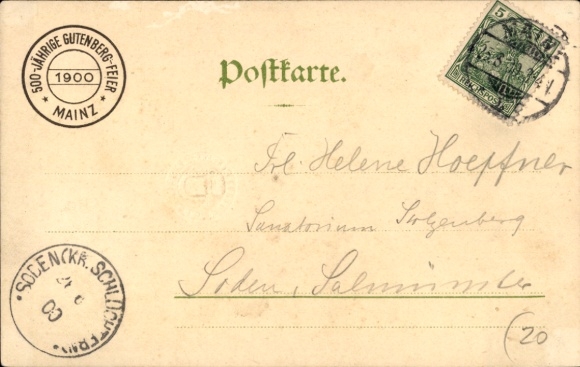 500-JÄHRIGE GUTENBERG-FEIER
1900
* MAINZ *
5
MAINZ
Postkarte.
Frl. Helene Hoepffner
Sanatorium Stolzenberg
Soden, Salmünster
SODEN (KR. SCHLÜCHTERN)
00
(20